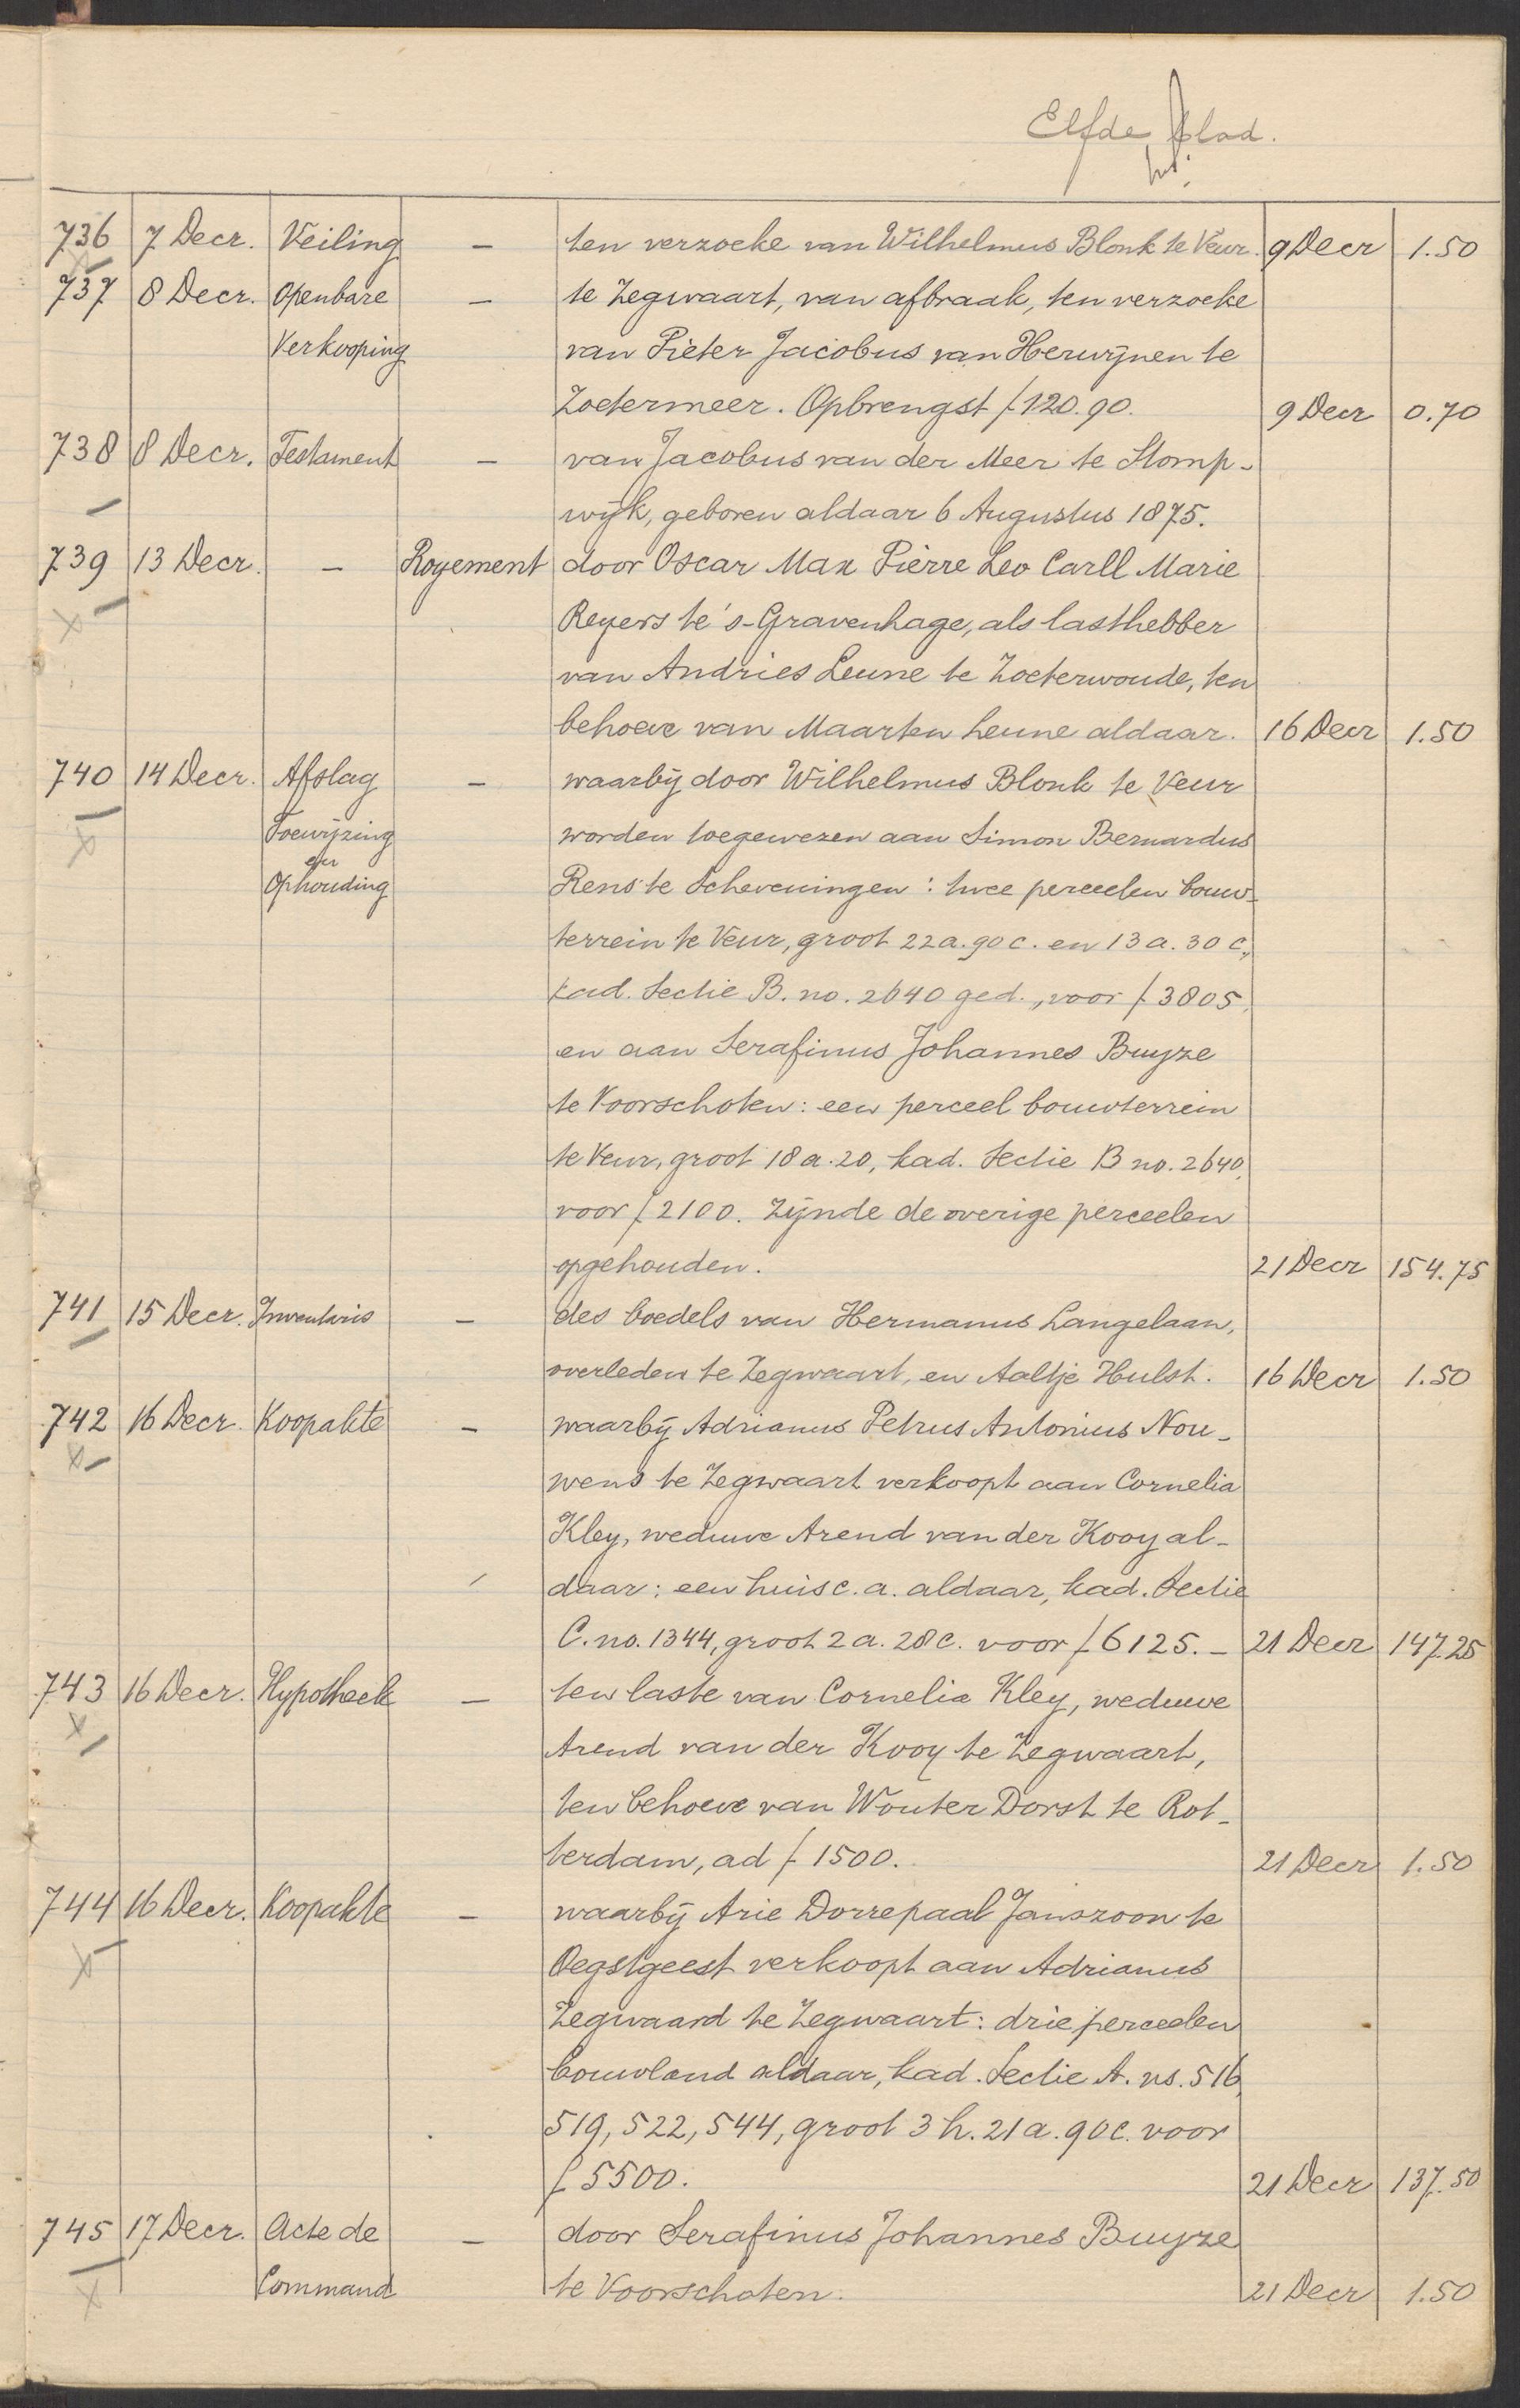 Elfde blad.
736 7 Decr. Veiling - ten verzoeke van Wilhelmus Blonk te Veur. 9 Decr 1.50
737 8 Decr. Openbare - te Zegwaart, van afbraak, ten verzoeke
Verkooping van Pieter Jacobus van Herwijnen te
Zoetermeer. Opbrengst f 120.90. 9 Decr 0.70
738 8 Decr. Testament - van Jacobus van der Meer te Stomp-
wijk, geboren aldaar 6 Augustus 1875.
739 13 Decr. - Royement door Oscar Max Pierre Leo Carll Marie
Reyers te 's-Gravenhage, als lasthebber
van Andries Leune te Zoeterwoude, ten
behoeve van Maarten Leune aldaar. 16 Decr 1.50
740 14 Decr. Afslag - waarbij door Wilhelmus Blonk te Veur
Toewijzing worden toegewezen aan Simon Bernardus
en
Ophouding Rens te Scheveningen: twee perceelen bouw-
terrein te Veur, groot 22 a. 90 c. en 13 a. 30 c.,
kad. Sectie B. no. 2640 ged., voor f 3805,
en aan Serafinus Johannes Buyze
te Voorschoten: een perceel bouwterrein
te Veur, groot 18 a. 20, kad. Sectie B no. 2640,
voor f 2100. Zijnde de overige perceelen
opgehouden. 21 Decr 154.75
741 15 Decr. Inventaris - des boedels van Hermanus Langelaan,
overleden te Zegwaart, en Aaltje Hulst. 16 Decr 1.50
742 16 Decr. Koopakte - waarbij Adrianus Petrus Antonius Nou-
wens te Zegwaart verkoopt aan Cornelia
Kley, weduwe Arend van der Kooy al-
daar: een huis c.a. aldaar, kad. Sectie
C. no. 1344, groot 2 a. 28 c. voor f 6125.- 21 Decr 147.25
743 16 Decr. Hypotheek - ten laste van Cornelia Kley, weduwe
Arend van der Kooy te Zegwaart,
ten behoeve van Wouter Dorst te Rot-
terdam, ad f 1500. 21 Decr 1.50
744 16 Decr. Koopakte - waarbij Arie Dorrepaal Janszoon te
Oegstgeest verkoopt aan Adrianus
Zegwaard te Zegwaart: drie perceelen
bouwland aldaar, kad. Sectie A. ns. 516
519, 522, 544, groot 3 h. 21 a. 90 c. voor
f 5500. 21 Decr 137.50
745 17 Decr. Acte de - door Serafinus Johannes Buyze
Command te Voorschoten. 21 Decr 1.50